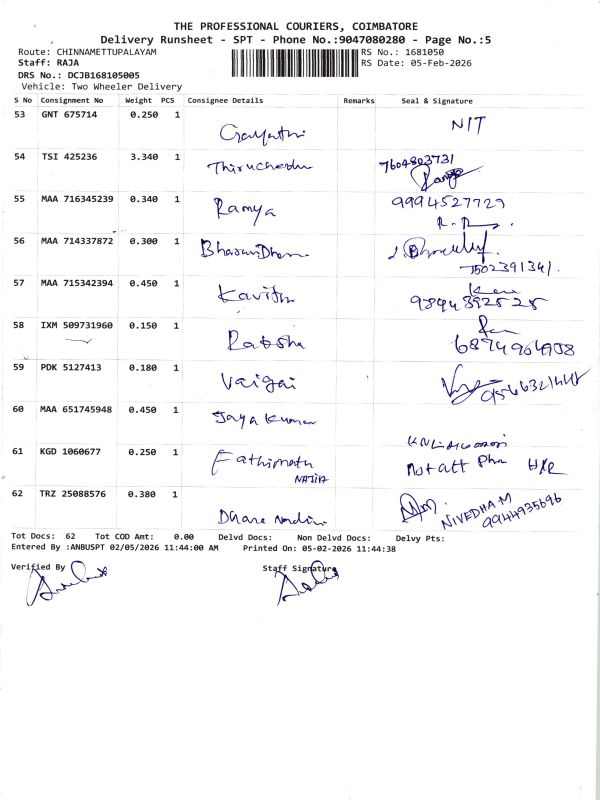 THE PROFESSIONAL COURIERS, COIMBATORE
Delivery Runsheet - SPT - Phone No.:9047080280 - Page No.:5
Route: CHINNAMETTUPALAYAM RS No.: 1681050
Staff: RAJA RS Date: 05-Feb-2026
DRS No.: DCJB168105005
Vehicle: Two Wheeler Delivery
S No Consignment No Weight PCS Consignee Details Remarks Seal & Signature
53 GNT 675714 0.250 1
Gayathri NIT
54 TSI 425236 3.340 1
Thiruchendu 7604803731
55 MAA 716345239 0.340 1 9994527729
Ramya
56 MAA 714337872 0.300 1
7502391341.
57 MAA 715342394 0.450 1
Kavitha 9894392525
58 IXM 509731960 0.150 1
59 PDK 5127413 0.180 1
Vaigai
60 MAA 651745948 0.450 1
Jaya Kumar
61 KGD 1060677 0.250 1
Fathimath
NAJIA
62 TRZ 25088576 0.380 1
NIVEDHA M
9944935696
Tot Docs: 62 Tot COD Amt: 0.00 Delvd Docs: Non Delvd Docs: Delvy Pts:
Entered By :ANBUSPT 02/05/2026 11:44:00 AM Printed On: 05-02-2026 11:44:38
Verified By Staff Signature